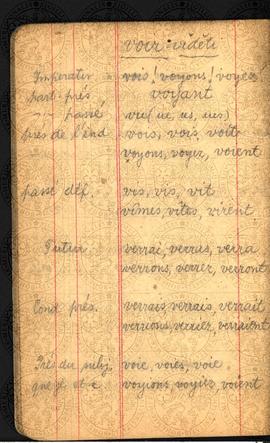 voir viděti
Imperativ vois! voyons! voyez!
part. prés voyant
passé vu (ue, us, ues)
prés de l'ind vois, vois, voit
voyons, voyez, voient
passé déf. vis, vis, vit
vîmes, vîtes, virent
Futur verrai, verras, verra
verrons, verrez, verront
Cond prés. verrais, verrais, verrait
verrions, verriez, verraient
Prés du subj. voie, voies, voie
que je voyions, voyiez, voient